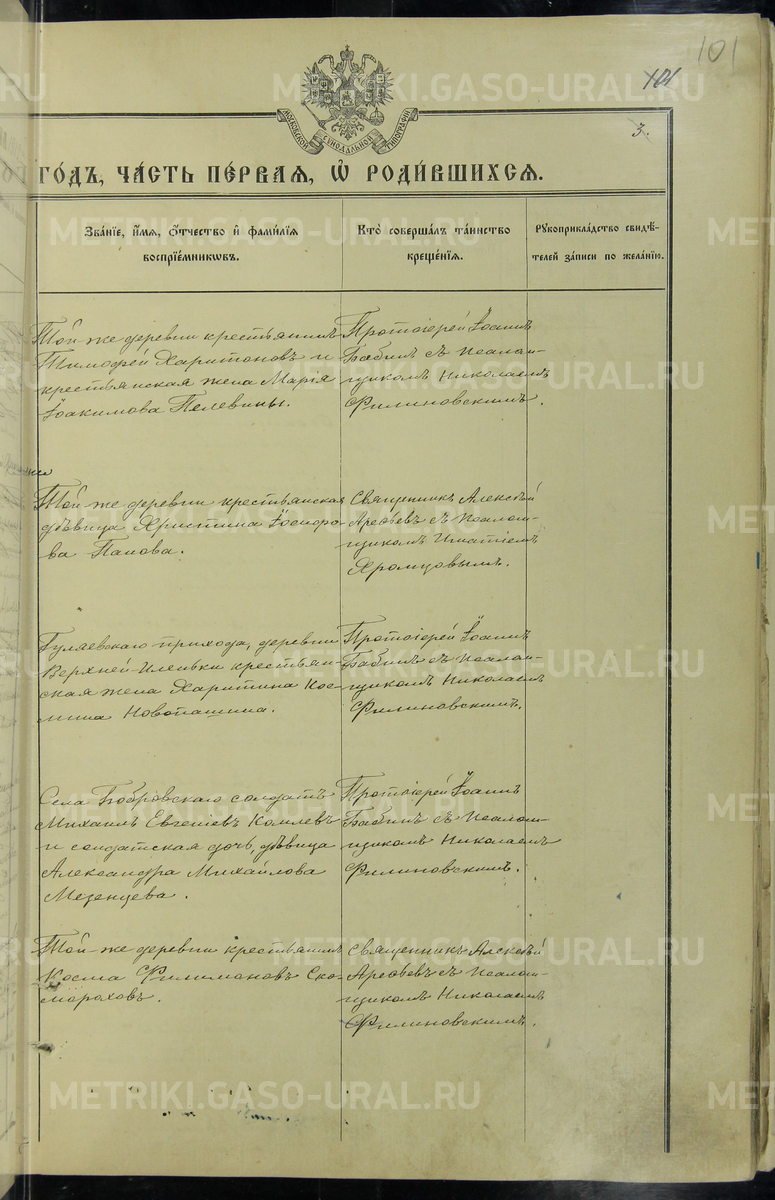 101
101
МОСКОВСКОЙ СѴНОДАЛЬНОЙ ТИПОГРАФІИ
3.
ГО́ДЪ, ЧА́СТЬ ПЕ́РВАЯ, Ѡ҆ РОДИ́ВШИХСЯ.
Зва́нїе, и҆́мѧ, ѻ҆́тчество и҆ фами́лїѧ
воспрїе́мникѡвъ.
Кто̀ соверша́лъ та́инство
креще́нїѧ.
Рꙋкоприкла́дство свидѣ́-
телей за́писи по жела́нїю.
Той же деревни крестьянинъ
Тимофей Харитоновъ и
крестьянская жена Марія
Іоакимова Пелевины.
Протоіерей Іоаннъ
Бабинъ съ псалом-
щикомъ Николаемъ
Филиновскимъ.
Той же деревни крестьянская
дѣвица Христина Іосифо-
ва Панова.
Священникъ Алексѣй
Арефьевъ съ псалом-
щикомъ Игнатіемъ
Хромцовымъ.
Гуляевскаго прихода, деревни
Верхней-Иленки крестьян-
ская жена Харитина Кос-
мина Новопашина.
Протоіерей Іоаннъ
Бабинъ съ псалом-
щикомъ Николаемъ
Филиновскимъ.
Села Бобровскаго солдатъ
Михаилъ Евгеніевъ Комлевъ
и солдатская дочь, дѣвица
Александра Михайлова
Мезенцева.
Протоіерей Іоаннъ
Бабинъ съ псалом-
щикомъ Николаемъ
Филиновскимъ.
Той же деревни крестьянинъ
Косма Филимоновъ Ско-
мороховъ.
Священникъ Алексѣй
Арефьевъ съ псалом-
щикомъ Николаемъ
Филиновскимъ.
METRIKI.GASO-URAL.RU